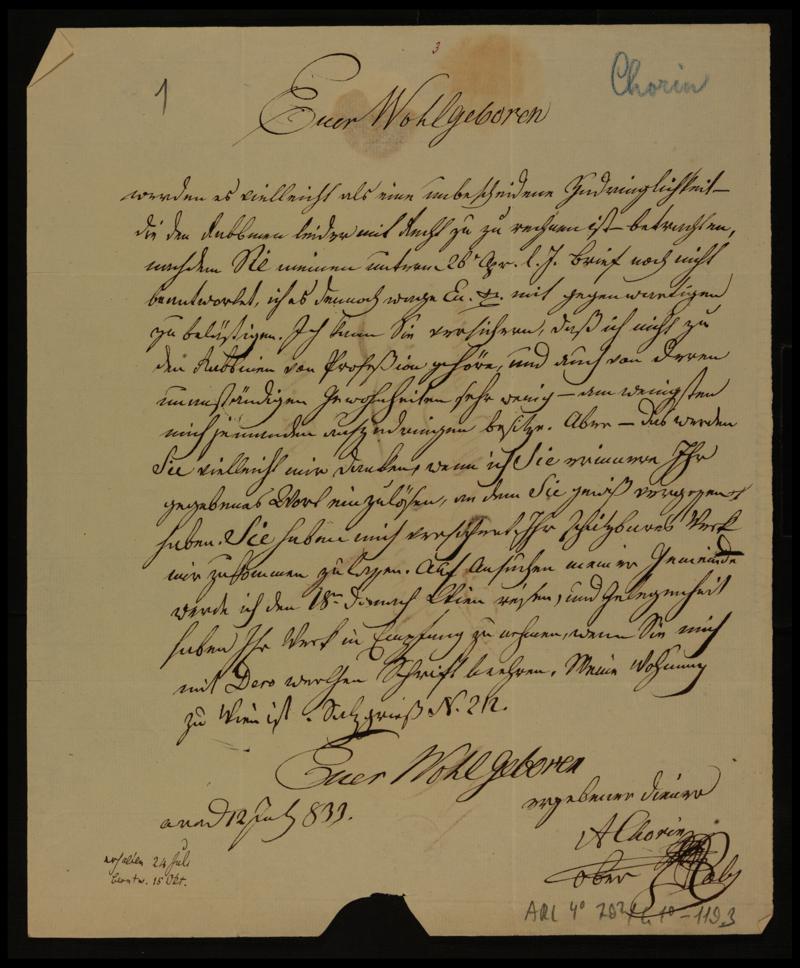 3
1
Chorin
Euer Wohlgeboren
werden es vielleicht als eine unbescheidene Zudringlichkeit –
die den Rabbinen leider mit Recht zu zu rechnen ist – betrachten,
nachdem Sie meinen unterm 26t Apr. l. J. Brief noch nicht
beantwortet, ich es dennoch wage Eu. mit gegenwärtigen
zu belästigen. Ich kann Sie versichern, daß ich nicht zu
den Rabbinen von Profeßion gehöre, und auch von deren
unanständigen Gewohnheiten sehr wenig – am wenigsten
mich jemanden aufzudringen besitze. Aber – das werden
Sie vielleicht mir danken, wenn ich Sie erinnere Ihr
gegebenes Wort einzulösen, an dem Sie gewiß vergessen
haben. Sie haben mich versichert, Ihr schätzbares Werk
mir zukommen zu lassen. Auf Ansuchen meiner Gemeinde
werde ich den 18ten nach Wien reisen, und Gelegenheit
haben Ihr Werk in Empfang zu nehmen, wenn Sie mich
mit Dero werthen Schrift beehren. Meine Wohnung
zu Wien ist Salzgrieß N. 212.
Euer Wohlgeboren
ergebener diener
arad 12 July 833.
A Chorin
ober Rab
erhalten 24 Juli
beantw. 15 Okt.
ARC 4° 792